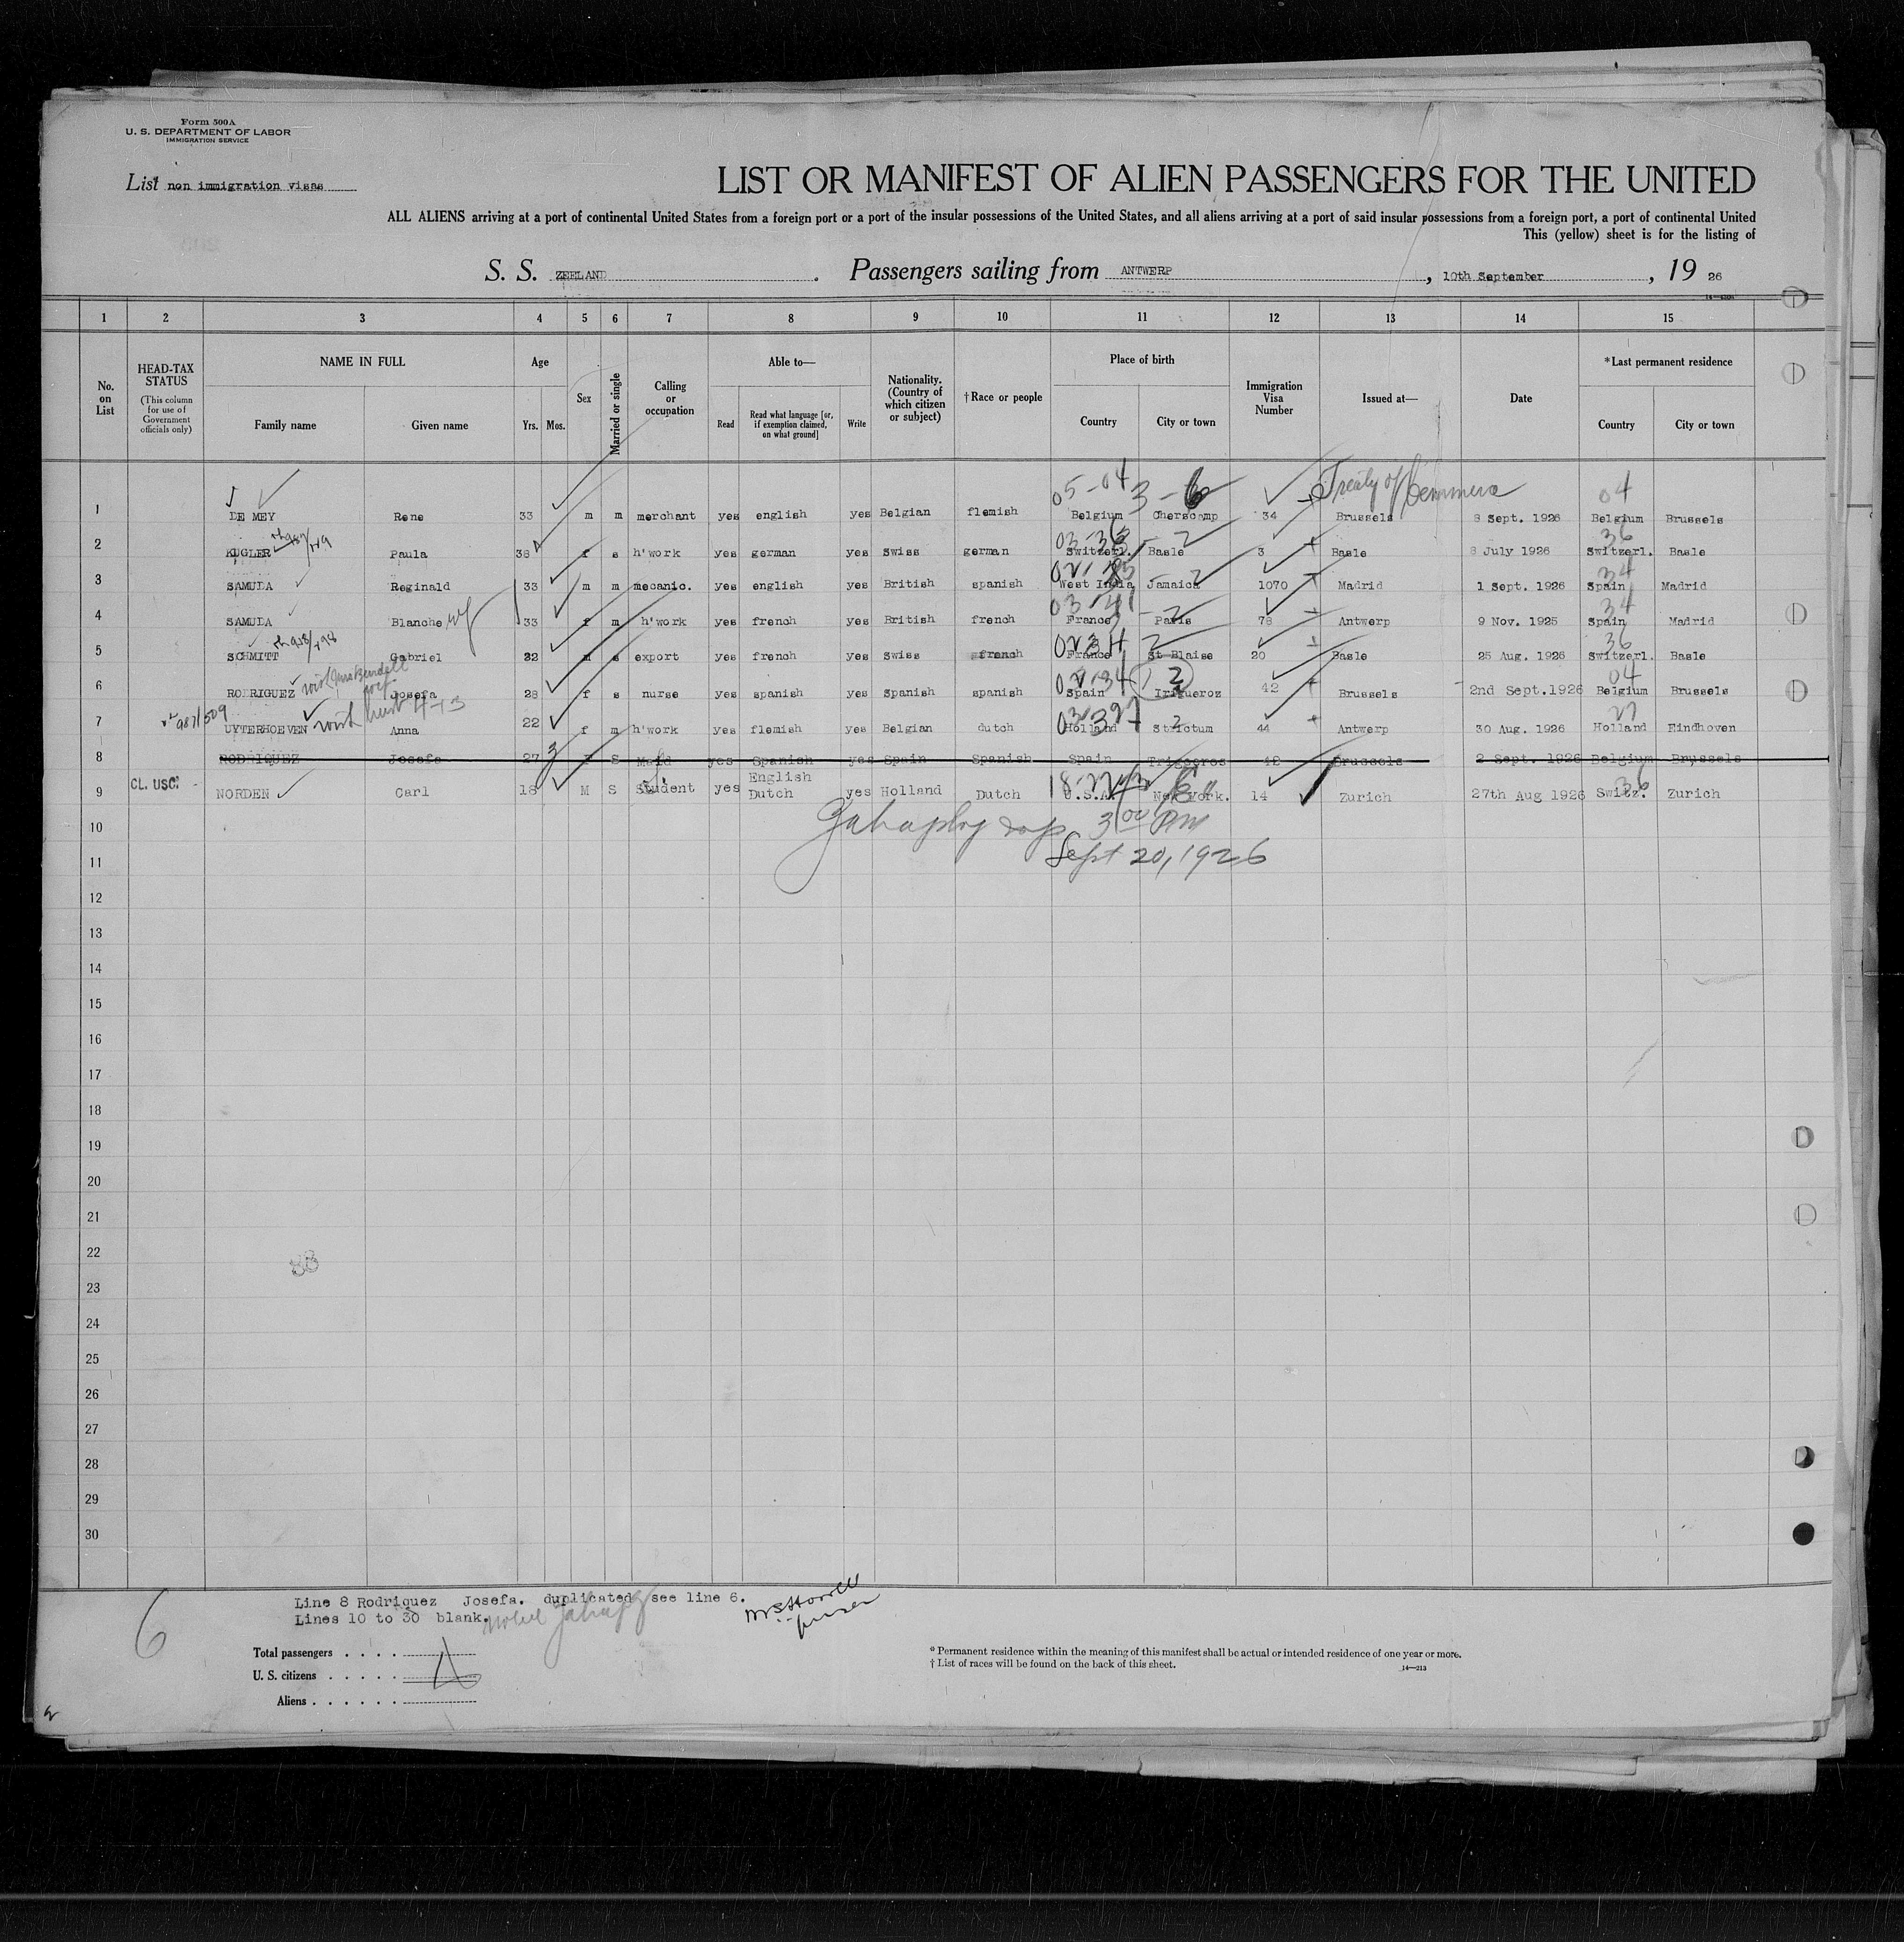 Form 500A
U. S. DEPARTMENT OF LABOR
IMMIGRATION SERVICE
List non immigration visas
LIST OR MANIFEST OF ALIEN PASSENGERS FOR THE UNITED
ALL ALIENS arriving at a port of continental United States from a foreign port or a port of the insular possessions of the United States, and all aliens arriving at a port of said insular possessions from a foreign port, a port of continental United
This (yellow) sheet is for the listing of
S. S. ZEELAND. Passengers sailing from ANTWERP, 10th September, 19 26
1 2 3 4 5 6 7 8 9 10 11 12 13 14 15
No. on List
HEAD-TAX STATUS (This column for use of Government officials only)
NAME IN FULL
Family name Given name
Age
Yrs. Mos.
Sex
Married or single
Calling or occupation
Able to—
Read Read what language [or, if exemption claimed, on what ground] Write
Nationality. (Country of which citizen or subject)
†Race or people
Place of birth
Country City or town
Immigration Visa Number
Issued at—
Date
*Last permanent residence
Country City or town
05-04 3-6 Treaty of 04
1 DE MEY Rene 33 m m merchant yes english yes Belgian flemish Belgium Cherscamp 34 Brussels 8 Sept. 1926 Belgium Brussels
03-36 2 36
2 KUGLER Paula 38 f s h'work yes german yes Swiss german Switzerl. Basle 3 Basle 8 July 1926 Switzerl. Basle
2 34
3 SAMUDA Reginald 33 m m mecanic. yes english yes British spanish West India Jamaica 1070 Madrid 1 Sept. 1926 Spain Madrid
03-41 2 34
4 SAMUDA Blanche wf 33 f m h'work yes french yes British french France Paris 78 Antwerp 9 Nov. 1925 Spain Madrid
2 36
5 SCHMITT Gabriel 22 m s export yes french yes Swiss french France St Blaise 20 Basle 25 Aug. 1926 Switzerl. Basle
2 04
6 RODRIGUEZ Josefa 28 f s nurse yes spanish yes Spanish spanish Spain Irigueroz 42 Brussels 2nd Sept.1926 Belgium Brussels
987/509 with 2 27
7 UYTERHOEVEN Anna 22 f m h'work yes flemish yes Belgian dutch Holland Strictum 44 Antwerp 30 Aug. 1926 Holland Eindhoven
8 RODRIQUEZ Josefa 27 F S Maid yes Spanish yes Spain Spanish Spain 42 Brussels 2 Sept. 1926 Belgium Brussels
9 CL. USC. NORDEN Carl 18 M S Student yes English Dutch yes Holland Dutch U.S.A. New York. 14 Zurich 27th Aug 1926 Switz. Zurich
10 3 00 PM
11 Sept 20, 1926
12
13
14
15
16
17
18
19
20
21
22
23
24
25
26
27
28
29
30
Line 8 Rodriguez Josefa. duplicated see line 6.
Lines 10 to 30 blank.
purser
6
Total passengers . . . .
U. S. citizens . . . . .
Aliens . . . . . .
* Permanent residence within the meaning of this manifest shall be actual or intended residence of one year or more.
† List of races will be found on the back of this sheet.
14—213